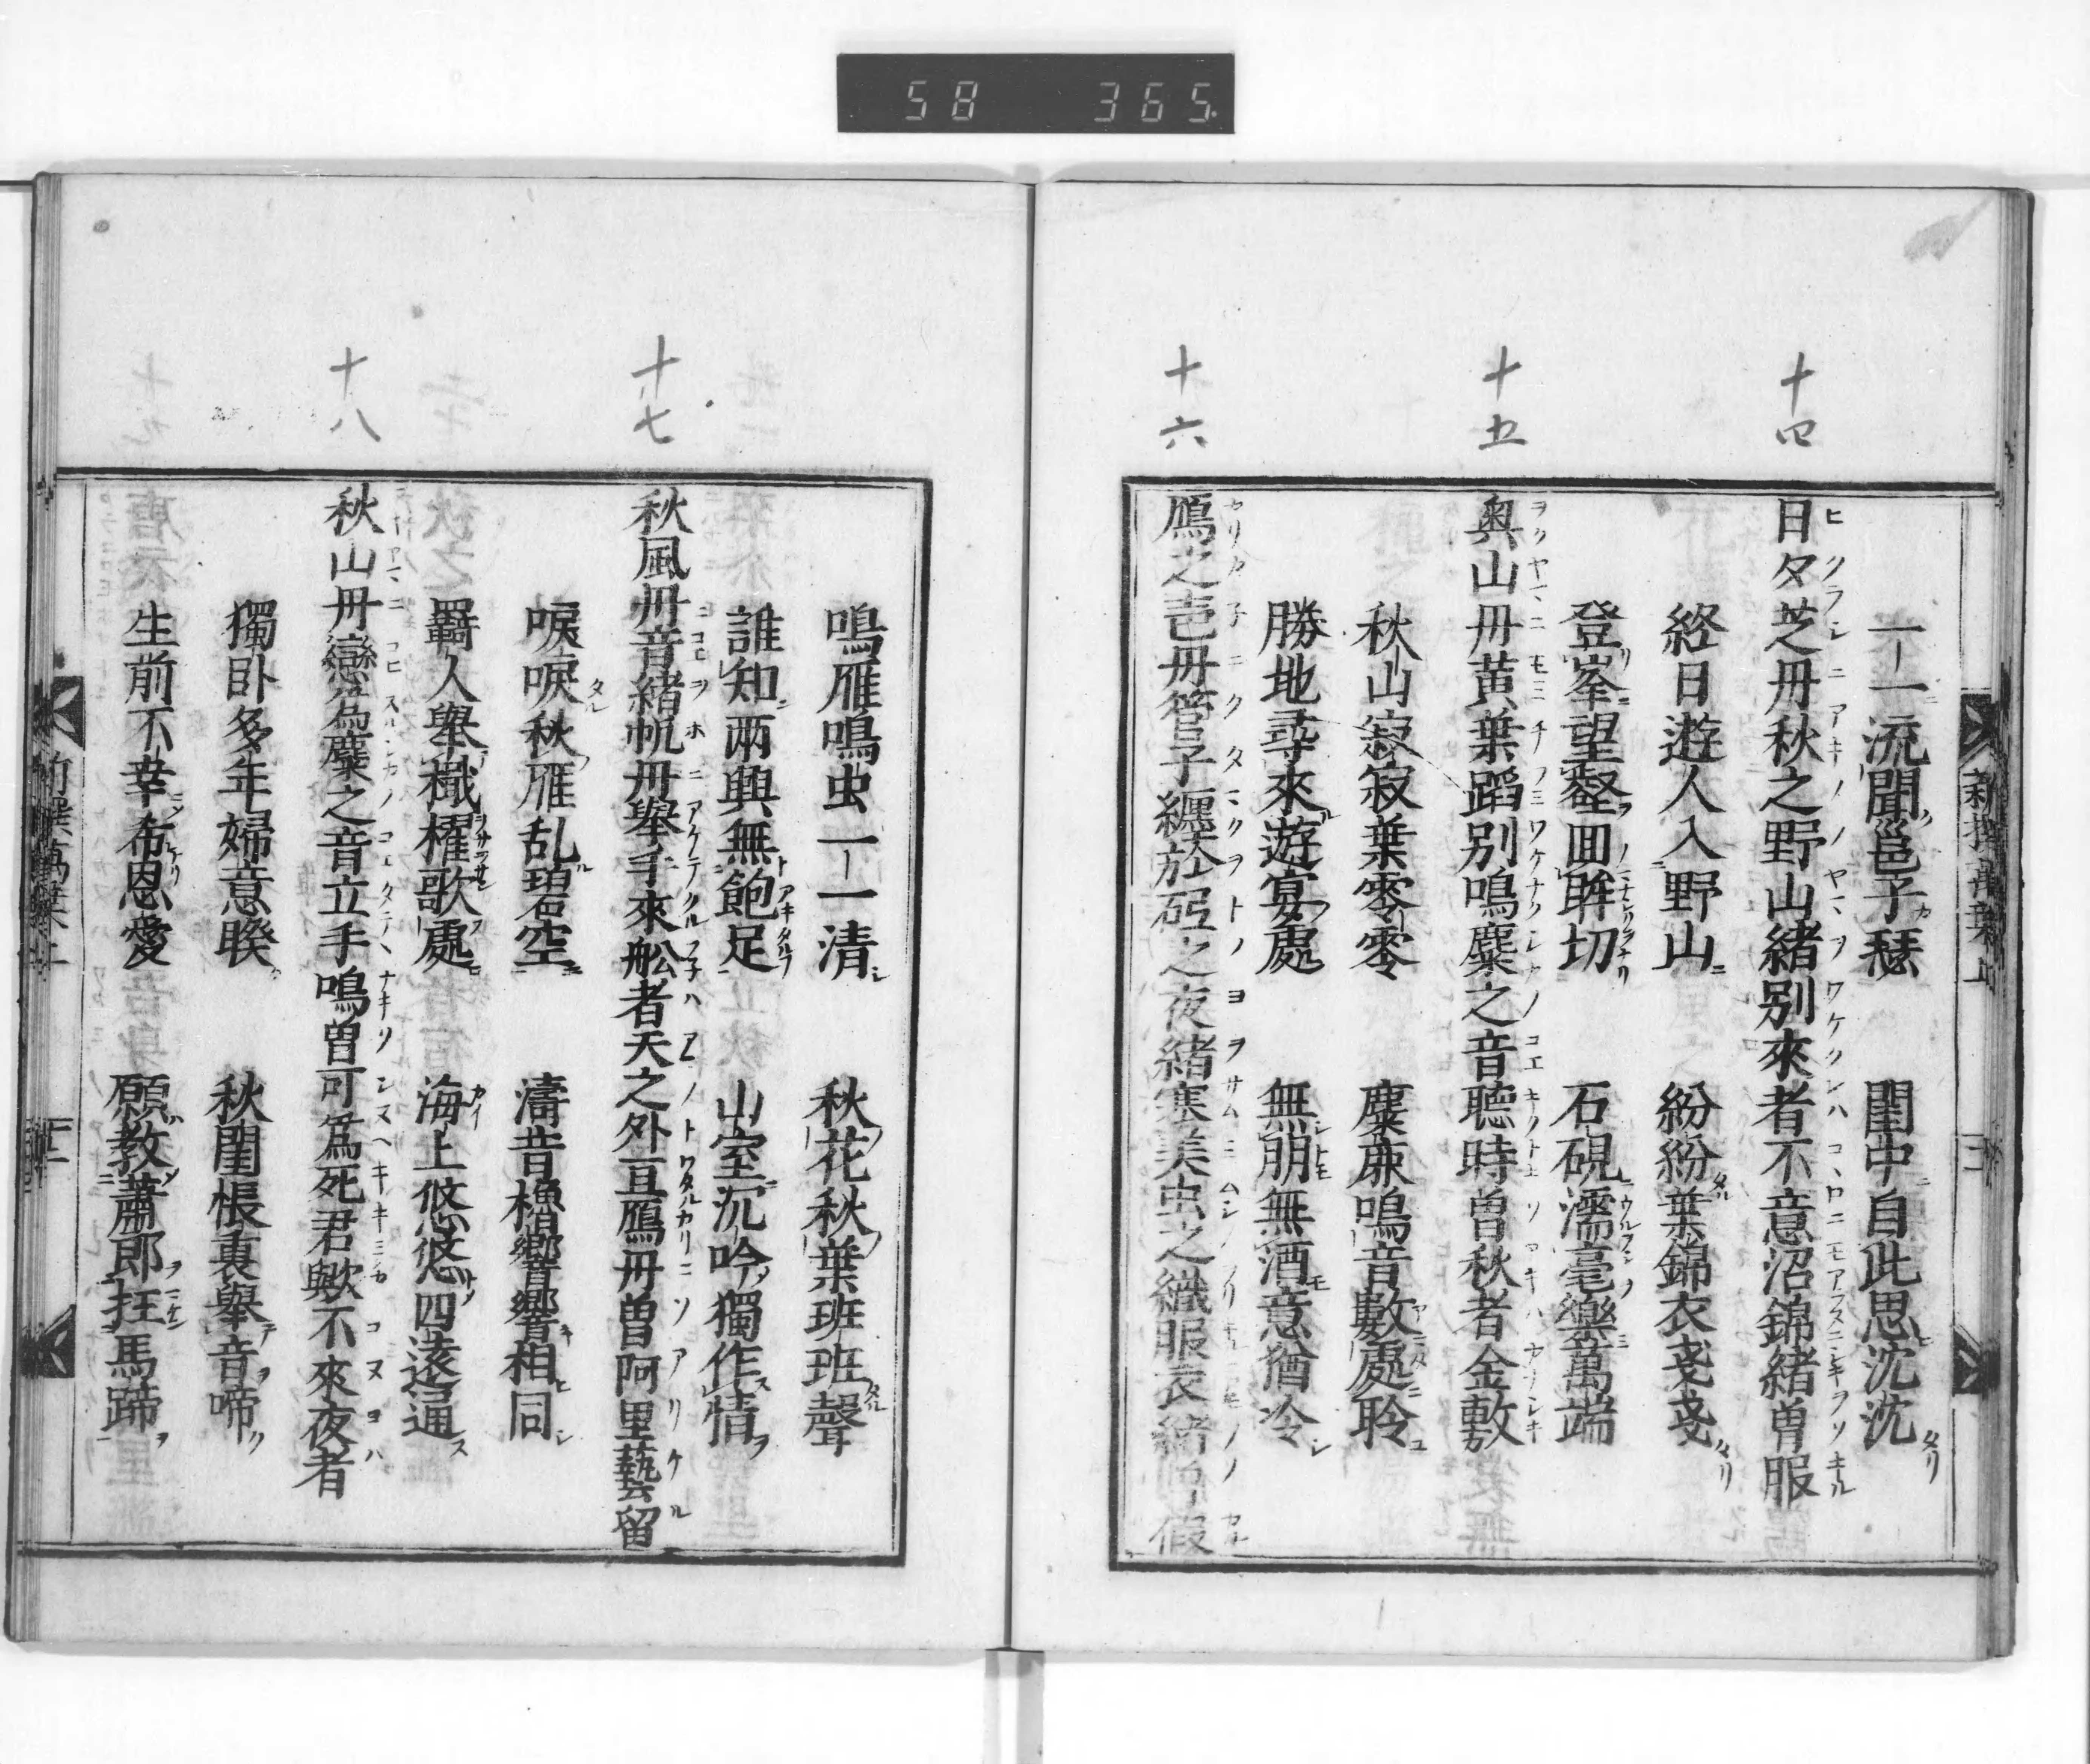 58 365
一一流聞邕子瑟 閨中自此思沈沈
十四
日夕芝丹秋之野山緒別來者不意沼錦緒曽服
終日遊人入野山 紛紛葉錦衣戔戔
登峯望壑回眸切 石硯濡毫樂萬端
十五
奥山丹黄葉蹈別鳴麋之音聽時曽秋者金敷
秋山寂寂葉零零 麋鹿鳴音數處聆
勝地尋來遊宴處 無朋無酒意猶冷
十六
鴈之壱丹管子纏於砳之夜緒寒美虫之織服衣緒曽假
新撰萬葉上
鳴雁鳴虫一一清 秋花秋葉班班聲
誰知兩興無飽足 山室沉吟獨作情
十七
秋風丹音緒帆丹舉手來舩者天之外亘鴈丹曽阿里藝留
唳唳秋雁乱碧空 濤音櫓響響相同
羇人舉檝櫂歌處 海上悠悠四遠通
十八
秋山丹戀為麋之音立手鳴曽可為死君歟不來夜者
獨卧多年婦意睽 秋閨帳裏舉音啼
生前不幸希恩愛 願教蕭郎抂馬蹄
新撰萬葉上